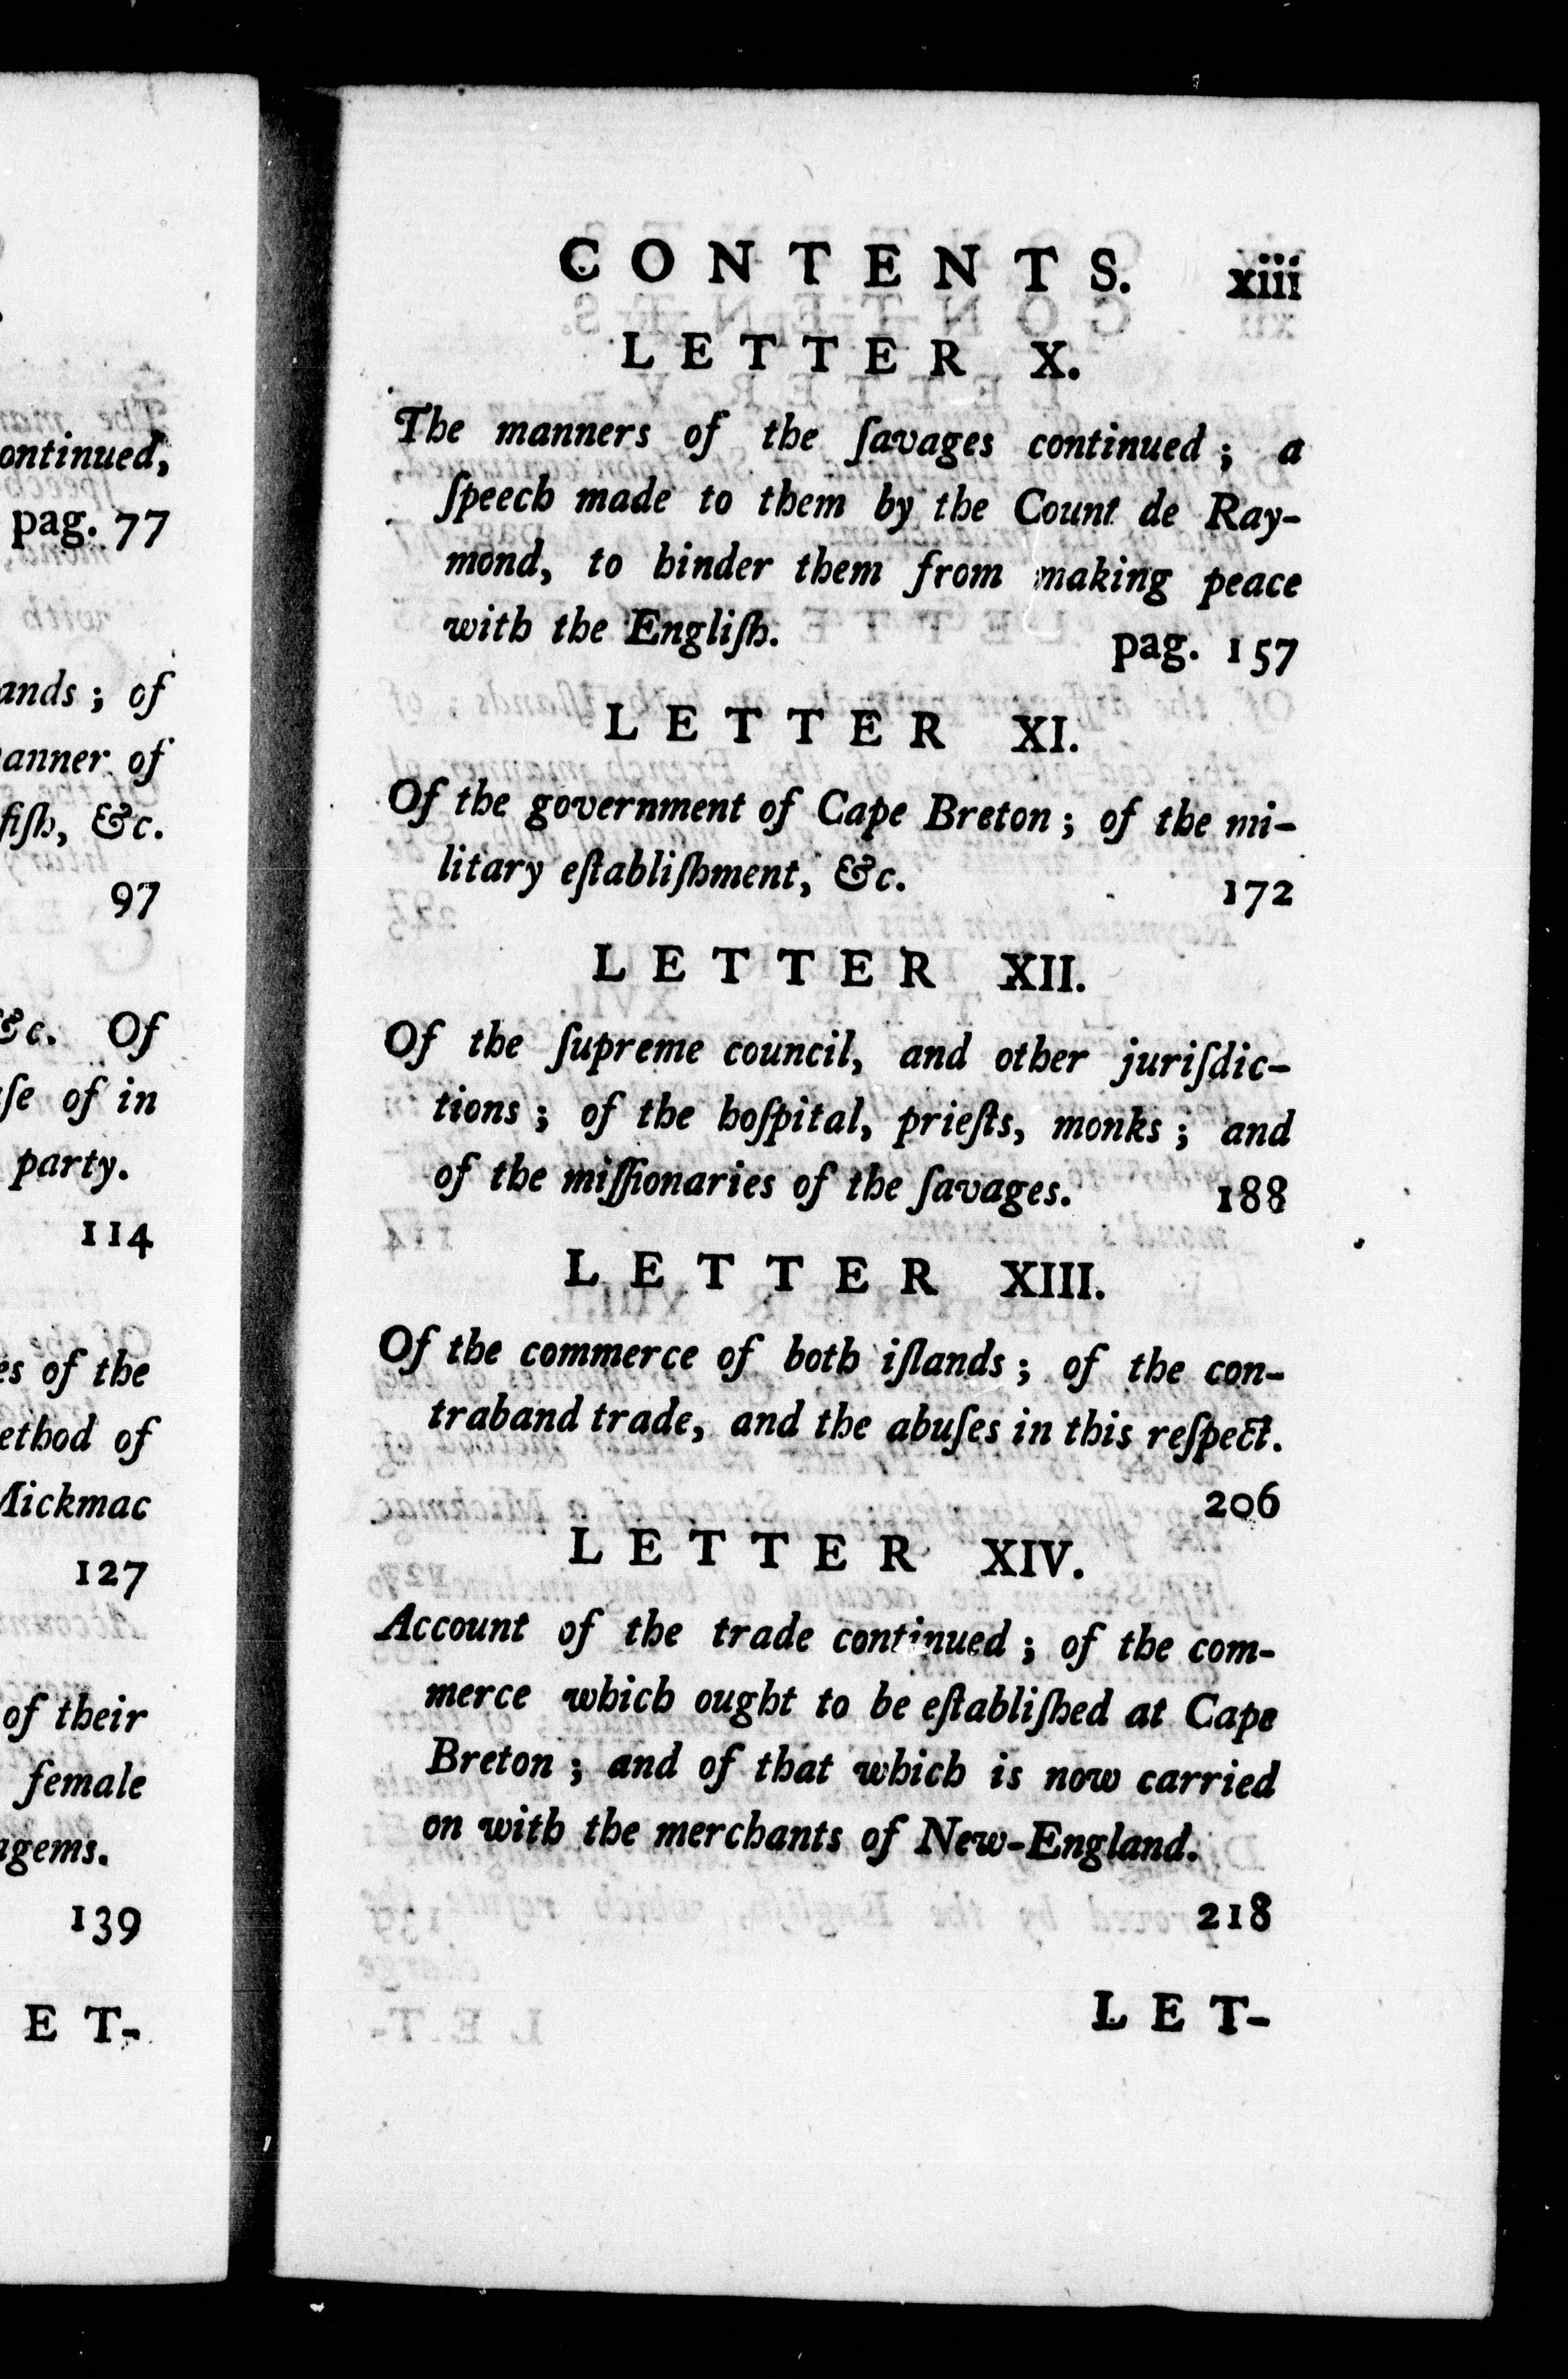 ontinued,
pag. 77
ands ; of
anner of
fiſh, &c.
97
&c. Of
ſe of in
party.
114
es of the
ethod of
Mickmac
127
of their
female
agems.
139
E T-
C O N T E N T S. xiii
L E T T E R X.
The manners of the ſavages continued ; a
ſpeech made to them by the Count de Ray-
mond, to hinder them from making peace
with the Engliſh. pag. 157
L E T T E R XI.
Of the government of Cape Breton ; of the mi-
litary eſtabliſhment, &c. 172
L E T T E R XII.
Of the ſupreme council, and other juriſdic-
tions ; of the hoſpital, prieſts, monks ; and
of the miſſionaries of the ſavages. 188
L E T T E R XIII.
Of the commerce of both iſlands ; of the con-
traband trade, and the abuſes in this reſpect.
206
L E T T E R XIV.
Account of the trade continued ; of the com-
merce which ought to be eſtabliſhed at Cape
Breton ; and of that which is now carried
on with the merchants of New-England.
218
L E T-